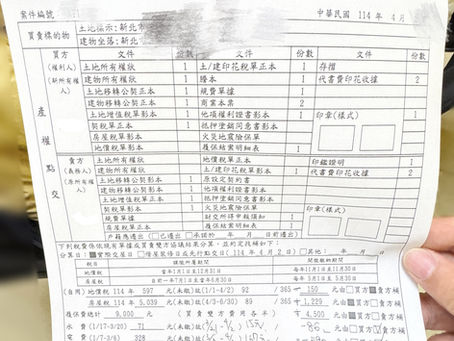 案件編號
中華民國 114 年 4 月
買賣標的物 土地標示：新北市
建物坐落：新北
產權點交
買方 文件 份數 文件 份數 文件 份數
(權利人) 土地所有權狀 1 土/建印花稅單正本 1 存摺
(新所有權人) 建物所有權狀 1 謄本 1 代書費印花收據 2
土地移轉公契正本 1 規費單據 1
建物移轉公契正本 2 商業本票 2
土地增值稅單影本 1 他項權利證書影本 1 印章(樣式)
契稅單正本 1 抵押塗銷同意書影本
房屋稅單影本 火災地震險保單
地價稅單影本 履保結案明細表 1
賣方 土地所有權狀 地價稅單正本 印鑑證明 1
(義務人) 建物所有權狀 土/建印花稅單影本 代書費印花收據 2
(原所有權人) 土地移轉公契影本 1 原設定契約書
建物移轉公契影本 1 他項權利證明書 印章(樣式)
土地增值稅單正本 抵押塗銷同意書影本
契稅單影本 1 火災地震險保單
規費單據 財交所得申報須知 1
房屋稅單正本 履保結案明細表 1
戶籍應遷出 □已遷出 □承諾於 年 月 日前遷出
下列稅費係依現有單據由買賣雙方協議結算分算，並約定找補如下：
分算日：■實際交屋日 □借屋裝修日或先行交付日 ( 114 年 4 月 2 日) □其他 年 月
稅目 課稅所屬期間 開徵繳納期間
地價稅 當年1月1日至12月31日 每年11月1日至11月30日
房屋稅 前一年7月1日至當年6月30日 每年5月1日至5月31日
(自用)地價稅 114 年 597 元(未繳)故(1/1-4/2) 92 /365 150 元由□買■賣方補
房屋稅 114 年 5,039 元(未繳)故(4/3-6/30) 89 /365 + 1,229 元由■買□賣方補
履保費合計 9,000 元 (買賣雙方費用各半) + 4,500 元由■買□賣方補
水費 (1/17-3/20) 71 元(未繳)故
電費 328 元(未繳)故